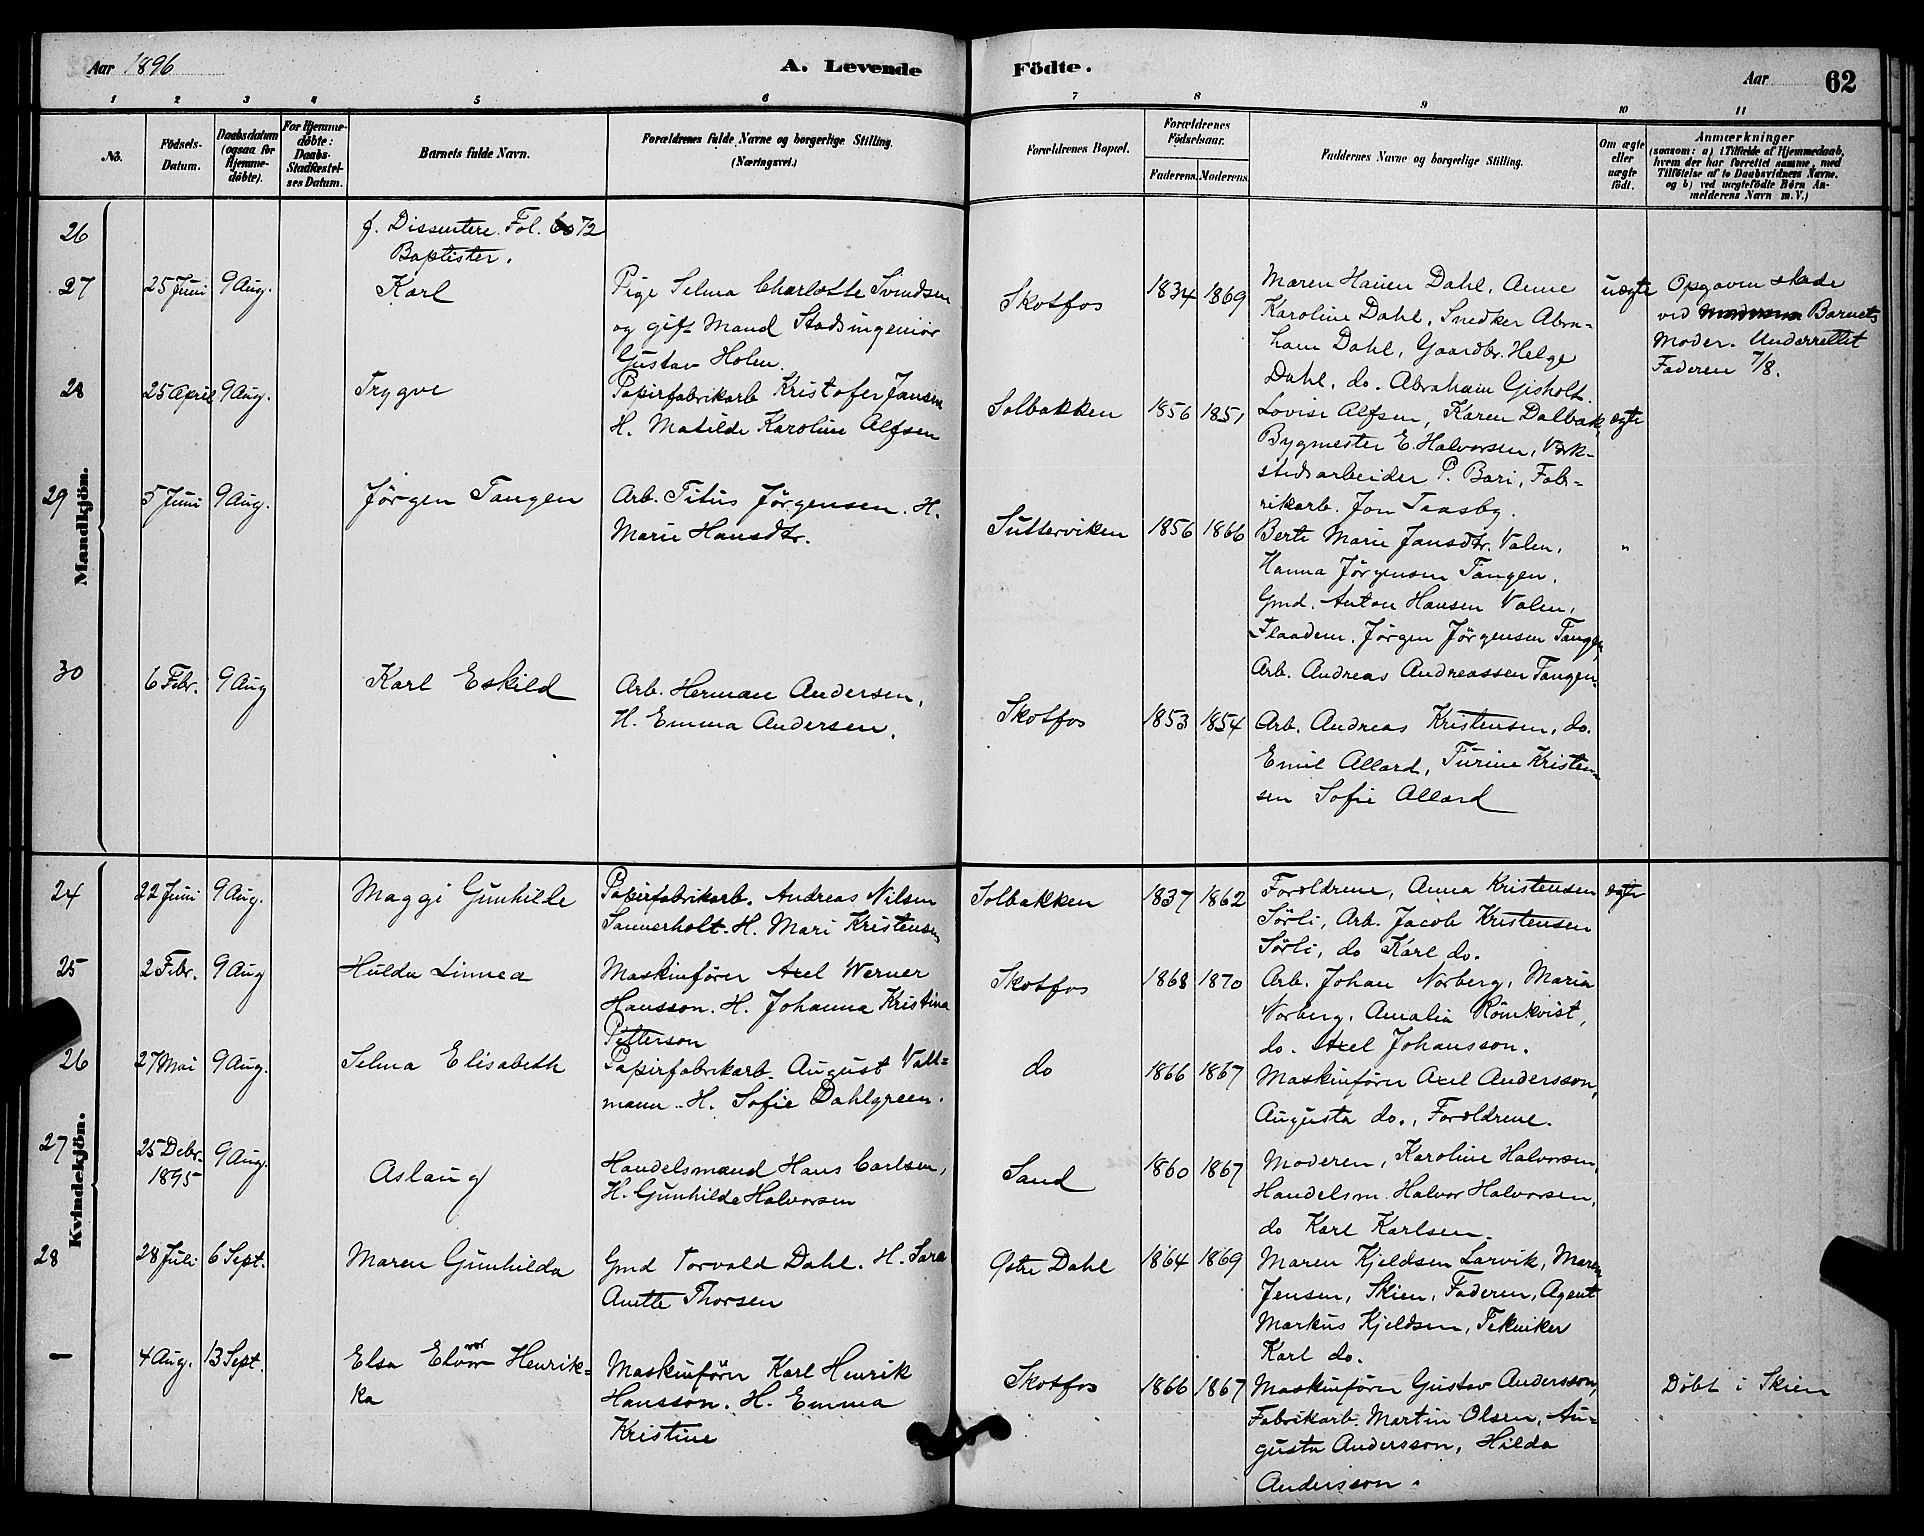 Aar 1896
A. Levende
Födte.
Aar
62
1 2 3 4 5 6 7 8 9 10 11
No.
Födsels-
Datum.
Daabsdatum
(ogsaa for
Hjemme-
döbte).
For Hjemme-
döbte:
Daabs-
Stadfæstel-
ses Datum.
Barnets fulde Navn.
Forældrenes fulde Navne og borgerlige Stilling.
(Næringsvei.)
Forældrenes Bopæl.
Forældrenes
Födselsaar.
Faderens.
Moderens.
Faddernes Navne og borgerlige Stilling.
Om ægte
eller
uægte
födt.
Anmærkninger
(saasom: a) i Tilfælde af Hjemmedaab,
hvem der har forrettet samme, med
Tilföielse af to Daabsvidners Navne.
og b) ved uægtefödte Börn An-
melderens Navn m.V.)
Mandkjön.
26
f. Dissentere. Fol. 72
Baptister.
27 25 Juni 9 Aug.
Karl
Pige Selma Charlotte Svendsen
og gift Mand Stadsingeniör
Gustav Holm.
Skotfos
1834 1869
Maren Hansen Dahl, Anne
Karoline Dahl, Snedker Abra-
ham Dahl, Gaardbr. Helge
Dahl, do. Abraham Gisholt.
uægte
Opgaven skede
ved Barnets
Moder. Underrettet
Faderen 7/8.
28 25 April 9 Aug.
Trygve
Papirfabrikarb Kristofer Jansen
H. Matilde Karoline Alfsen
Solbakken
1856 1851
Lovise Alfsen, Karen Dalbak,
Bygmester E. Halvorsen, Værk-
stedsarbeider P. Bari, Fab-
rikarb. Jon Taasby.
ægte
29 5 Juni 9 Aug.
Jørgen Tangen
Arb. Titus Jørgensen. H.
Marie Hansdtr.
Sutterviken
1856 1866
Berte Marie Jansdtr. Valen,
Hanna Jørgensen Tangen,
Gmd. Anton Hansen Valen,
Flaadem. Jørgen Jørgensen Tangen,
Arb. Andreas Andreassen Tangen.
"
30 6 Febr. 9 Aug
Karl Eskild
Arb. Herman Andersen,
H. Emma Andersen.
Skotfos
1853 1854
Arb. Andreas Kristensen, do.
Emil Allard, Turine Kristen-
sen Sofie Allard
Kvindekjön.
24 22 Juni 9 Aug.
Maggi Gunhilde
Papirfabrikarb. Andreas Nilsen
Sannerholt. H. Mari Kristensen
Solbakken
1837 1862
Forældrene, Anna Kristensen
Sørli, Arb. Jacob Kristensen
Sørli, do Karl do.
ægte
25 2 Febr. 9 Aug
Hulda Linnea
Maskinfören Axel Werner
Hansson. H. Johanna Kristina
Petterson
Skotfos
1868 1870
Arb. Johan Norberg, Maria
Norberg, Amalia Römkvist,
do. Axel Johansson.
26 27 Mai 9 Aug.
Selma Elisabeth
Papirfabrikarb. August Vall-
mann. H. Sofie Dahlgreen.
do
1866 1867
Maskinfören Axel Andersson,
Augusta do., Forældrene.
27 25 Debr. 1895 9 Aug.
Aslaug
Handelsmand Hans Carlsen,
H. Gunhilde Halvorsen
Sand
1860 1867
Moderen, Karoline Halvorsen,
Handelsm. Halvor Halvorsen,
do Karl Karlsen.
28 28 Juli 6 Sept.
Maren Gunhilda
Gmd Torvald Dahl. H. Sara
Anette Thorsen
Østre Dahl
1864 1869
Maren Kjeldsen Larvik, Maren
Jensen, Skien, Faderen, Agent
Markus Kjeldsen, Tekniker
Karl do.
— 4 Aug. 13 Sept.
Elsa Elvor Henrik-
ka
Maskinfören Karl Henrik
Hansson. H. Emma
Kristine
Skotfos
1866 1867
Maskinfören Gustav Andersson,
Fabrikarb. Martin Olsen, Au-
gusta Andersson, Hilda
Andersson.
Döbt i Skien